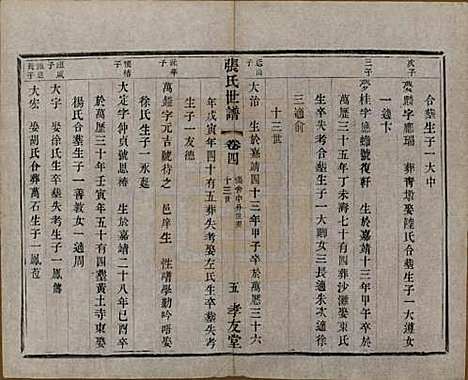 合塟生子一大中
次子
夢麟字應瑞 葬靑墩娶陸氏合塟生子一大道女
一適卞
三子
夢桂字應蟾號復軒 生於嘉靖十三年甲午卒於
萬厯三十五年丁未壽七十有四葬沙灘娶束氏
生卒失考合塟生子一大勛女三長適朱次適徐
三適俞
十三世
大治 生於嘉靖四十三年甲子卒於萬厯三十六
張氏世譜 卷四
十三世
五 孝友堂
年戊寅年三十有五葬失考娶左氏生卒失考合塟
生子一友德
萬鍾字元吉號待之 邑庠生 性嗜學勤吟唔娶
徐氏生子一永庭
大定字仲貞號鳳樓 生於嘉靖二十八年己酉卒
於萬厯三十年壬寅年五十有四塟黃土寺東娶
楊氏合塟生子一善敎女一適謝
大宇 娶徐氏生卒塟失考生子一鳳
大宏 娶胡氏合葬萬石生子一鳳